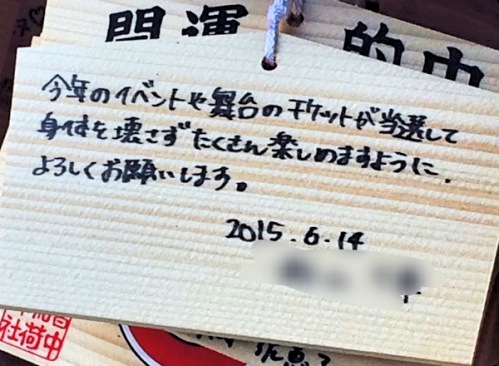 開運 的中
今年のイベントや舞台のチケットが当選して
身体を壊さずたくさん楽しめますように。
よろしくお願いします。
2015.6.14